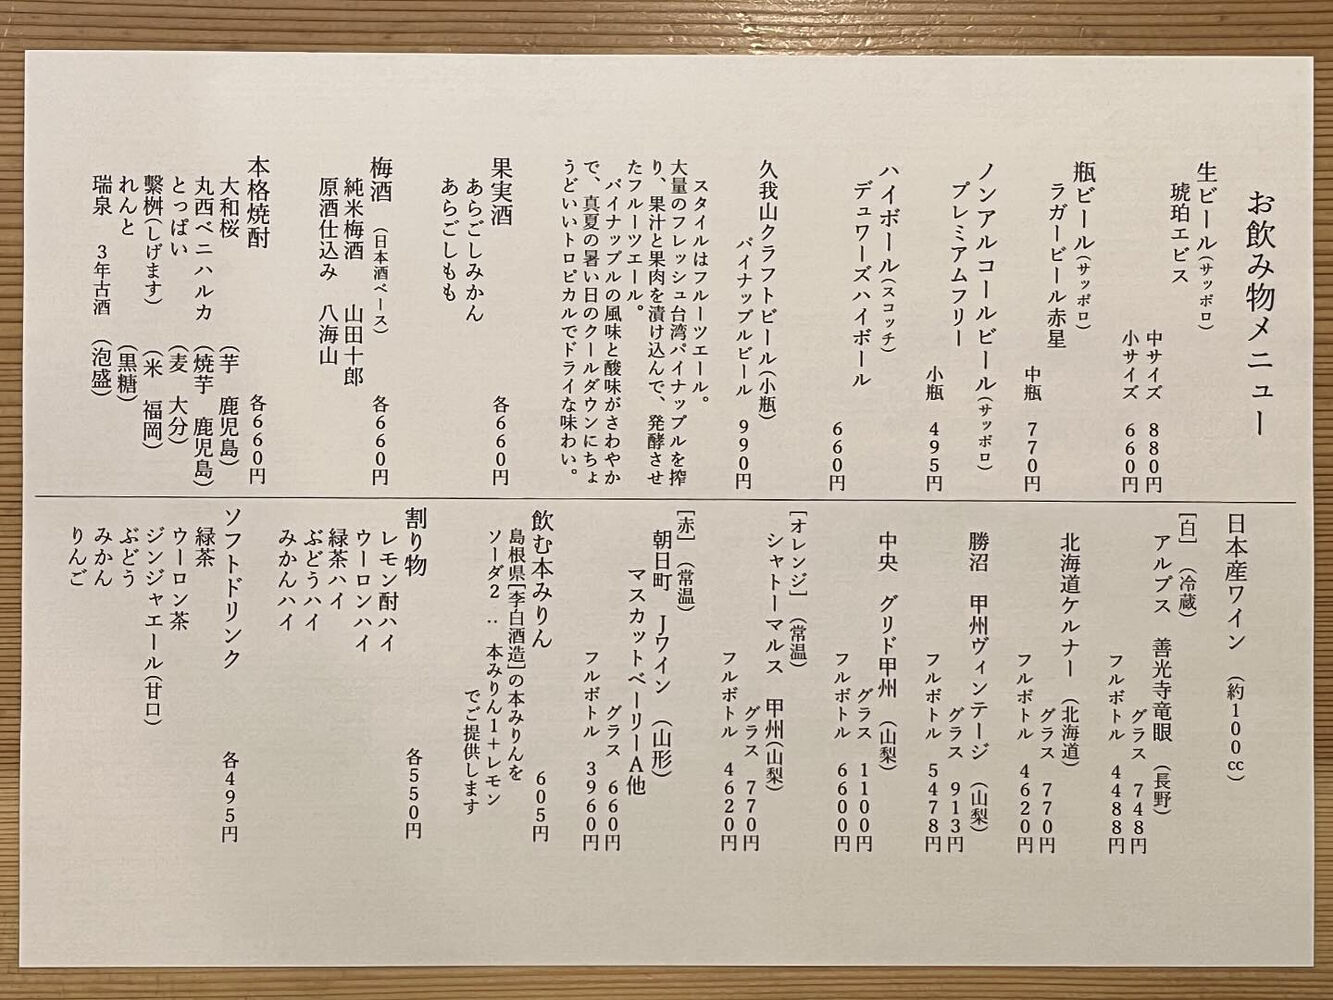 お飲み物メニュー
生ビール(サッポロ)
琥珀エビス
中サイズ 880円
小サイズ 660円
瓶ビール(サッポロ)
ラガービール赤星
中瓶 770円
ノンアルコールビール(サッポロ)
プレミアムフリー
小瓶 495円
ハイボール(スコッチ)
デュワーズハイボール
660円
久我山クラフトビール(小瓶)
パイナップルビール 990円
スタイルはフルーツエール。
大量のフレッシュ台湾パイナップルを搾
り、果汁と果肉を漬け込んで、発酵させ
たフルーツエール。
パイナップルの風味と酸味がさわやか
で、真夏の暑い日のクールダウンにちょ
うどいいトロピカルでドライな味わい。
果実酒 各660円
あらごしみかん
あらごしもも
梅酒 (日本酒ベース) 各660円
純米梅酒 山田十郎
原酒仕込み 八海山
本格焼酎 各660円
大和桜 (芋 鹿児島)
丸西ベニハルカ (焼芋 鹿児島)
とっぱい (麦 大分)
繋桝(しげます) (米 福岡)
れんと (黒糖)
瑞泉 3年古酒 (泡盛)
日本産ワイン (約100cc)
[白] (冷蔵)
アルプス 善光寺竜眼 (長野)
グラス 748円
フルボトル 4488円
北海道ケルナー (北海道)
グラス 770円
フルボトル 4620円
勝沼 甲州ヴィンテージ (山梨)
グラス 913円
フルボトル 5478円
中央 グリド甲州 (山梨)
グラス 1100円
フルボトル 6600円
[オレンジ] (常温)
シャトーマルス 甲州(山梨)
グラス 770円
フルボトル 4620円
[赤] (常温)
朝日町 Jワイン (山形)
マスカットベーリーA他
グラス 660円
フルボトル 3960円
飲む本みりん 605円
島根県[李白酒造]の本みりんを
ソーダ2:本みりん1+レモン
でご提供します
割り物 各550円
レモン酎ハイ
ウーロンハイ
緑茶ハイ
ぶどうハイ
みかんハイ
ソフトドリンク 各495円
緑茶
ウーロン茶
ジンジャエール(甘口)
ぶどう
みかん
りんご